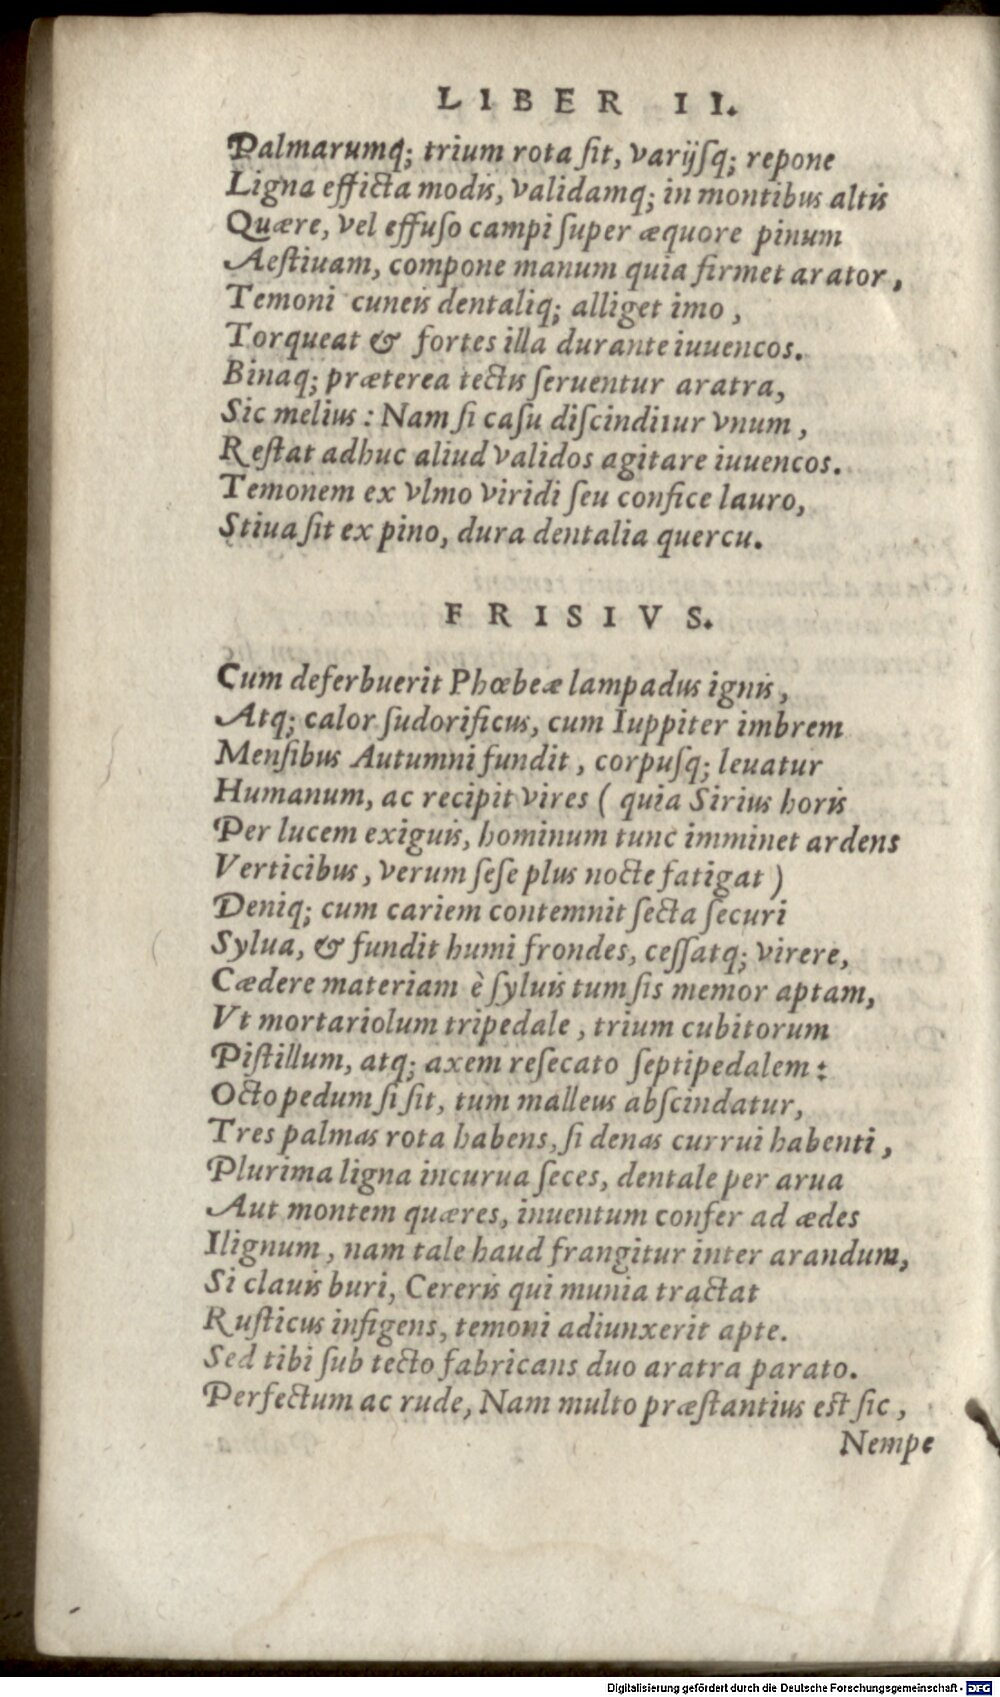 LIBER II.
Palmarumq; trium rota ſit, varijſq; repone
Ligna efficta modis, validamq; in montibus altis
Quære, vel effuſo campi ſuper æquore pinum
Aeſtiuam, compone manum quia firmet arator,
Temoni cuneis dentaliq; alliget imo,
Torqueat & fortes illa durante iuuencos.
Binaq; præterea tectis ſeruentur aratra,
Sic melius: Nam ſi caſu diſcinditur vnum,
Reſtat adhuc aliud validos agitare iuuencos.
Temonem ex vlmo viridi ſeu confice lauro,
Stiua ſit ex pino, dura dentalia quercu.
FRISIVS.
Cum deferbuerit Phœbeæ lampadus ignis,
Atq; calor ſudorificus, cum Iuppiter imbrem
Menſibus Autumni fundit, corpuſq; leuatur
Humanum, ac recipit vires ( quia Sirius horis
Per lucem exiguis, hominum tunc imminet ardens
Verticibus, verum ſeſe plus nocte fatigat )
Deniq; cum cariem contemnit ſecta ſecuri
Sylua, & fundit humi frondes, ceſſatq; virere,
Cædere materiam è ſyluis tum ſis memor aptam,
Vt mortariolum tripedale, trium cubitorum
Piſtillum, atq; axem reſecato ſeptipedalem:
Octo pedum ſi ſit, tum malleus abſcindatur,
Tres palmas rota habens, ſi denas currui habenti,
Plurima ligna incurua ſeces, dentale per arua
Aut montem quæres, inuentum confer ad ædes
Ilignum, nam tale haud frangitur inter arandum,
Si clauis buri, Cereris qui munia tractat
Ruſticus infigens, temoni adiunxerit apte.
Sed tibi ſub tecto fabricans duo aratra parato.
Perfectum ac rude, Nam multo præſtantius eſt ſic,
Nempe
Digitalisierung gefördert durch die Deutsche Forschungsgemeinschaft - DFG